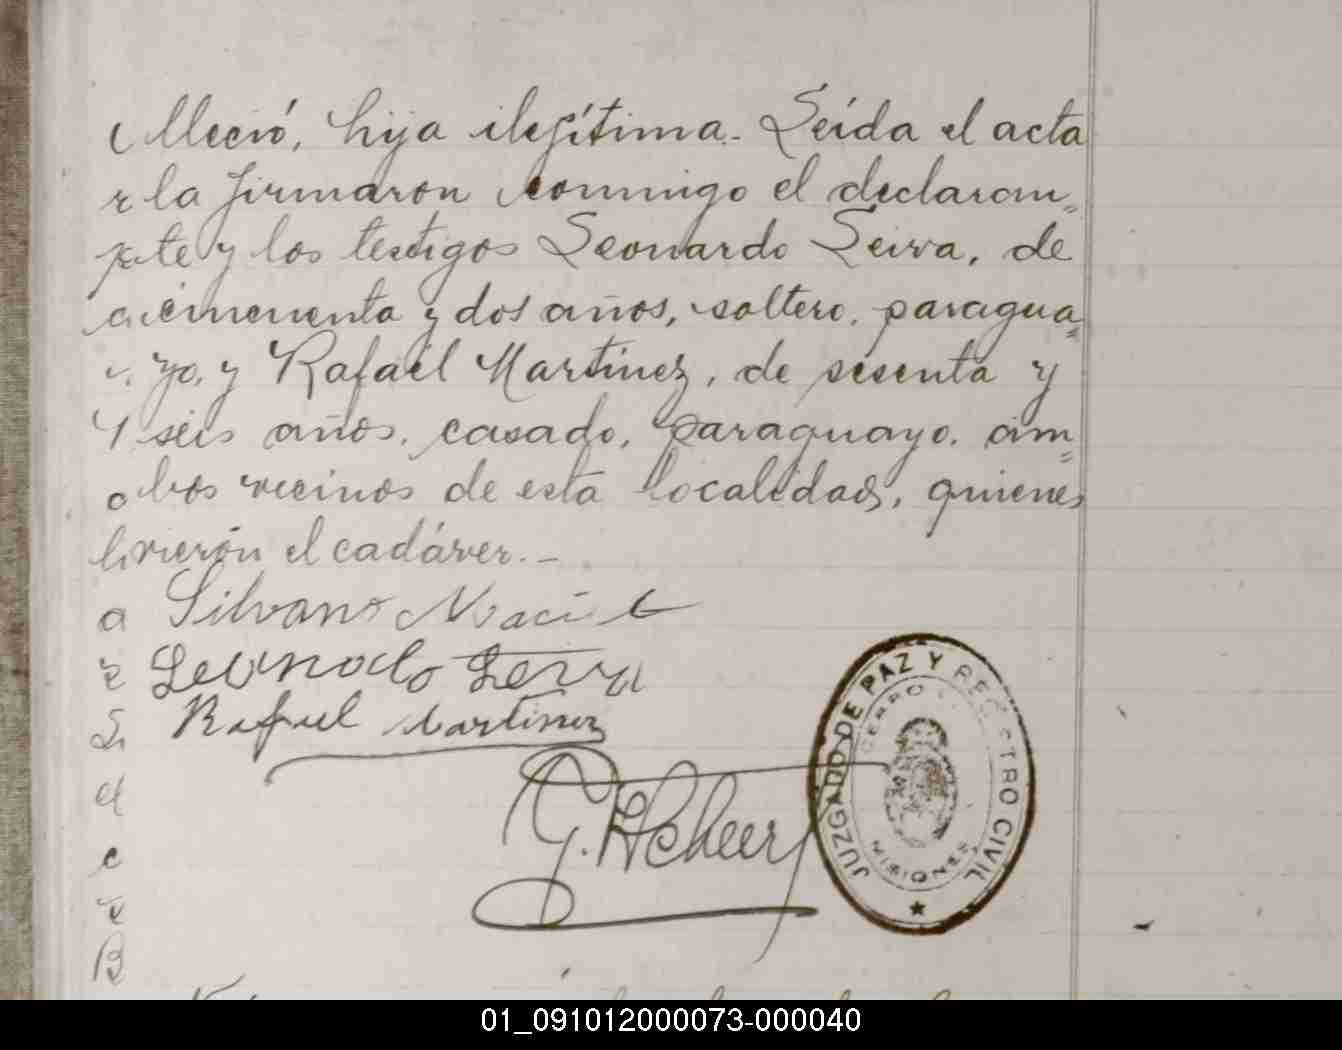 lleció, hija ilegítima. Leída el acta
la firmaron conmigo el declaran=
te y los testigos Leonardo Leiva, de
cincuenta y dos años, soltero, paragua=
yo, y Rafael Martínez, de sesenta y
seis años, casado, paraguayo, am=
bos vecinos de esta localidad, quienes
vieron el cadáver.-
Silvano
Leonardo Leiva
Rafael Martinez
JUZGADO DE PAZ Y REGISTRO CIVIL
CERRO
MISIONES
01_091012000073-000040